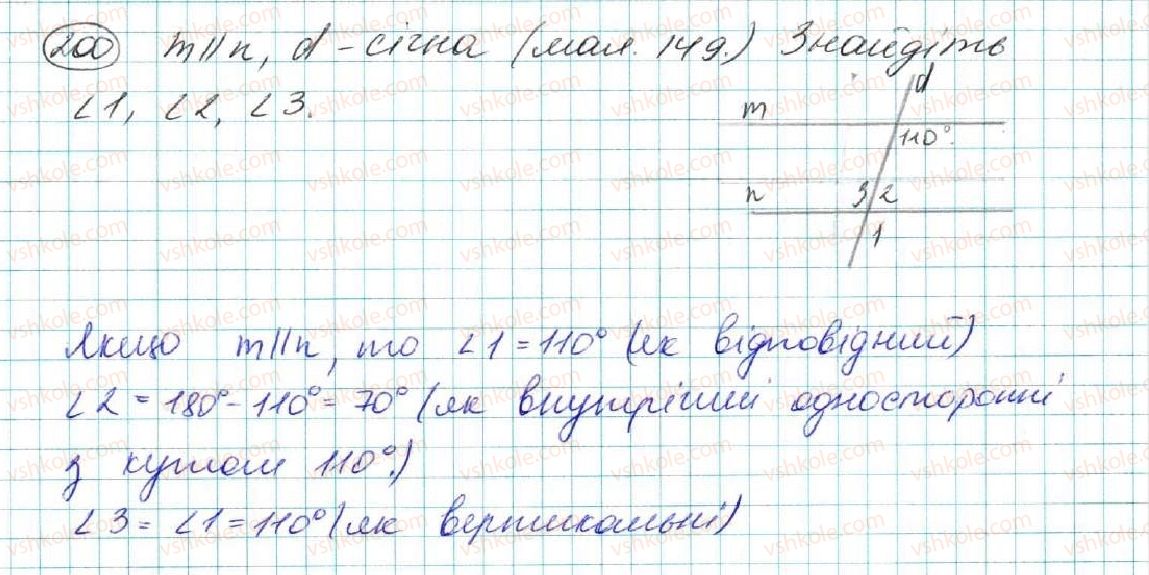 200 m∥n, d - січна (мал. 149.) Знайдіть
∠1, ∠2, ∠3.
d
m
110°.
n 3 2
1
Якщо m∥n, то ∠1 = 110° (як відповідний)
∠2 = 180° - 110° = 70° (як внутрішні односторонні
з кутом 110°.)
∠3 = ∠1 = 110° (як вертикальні)